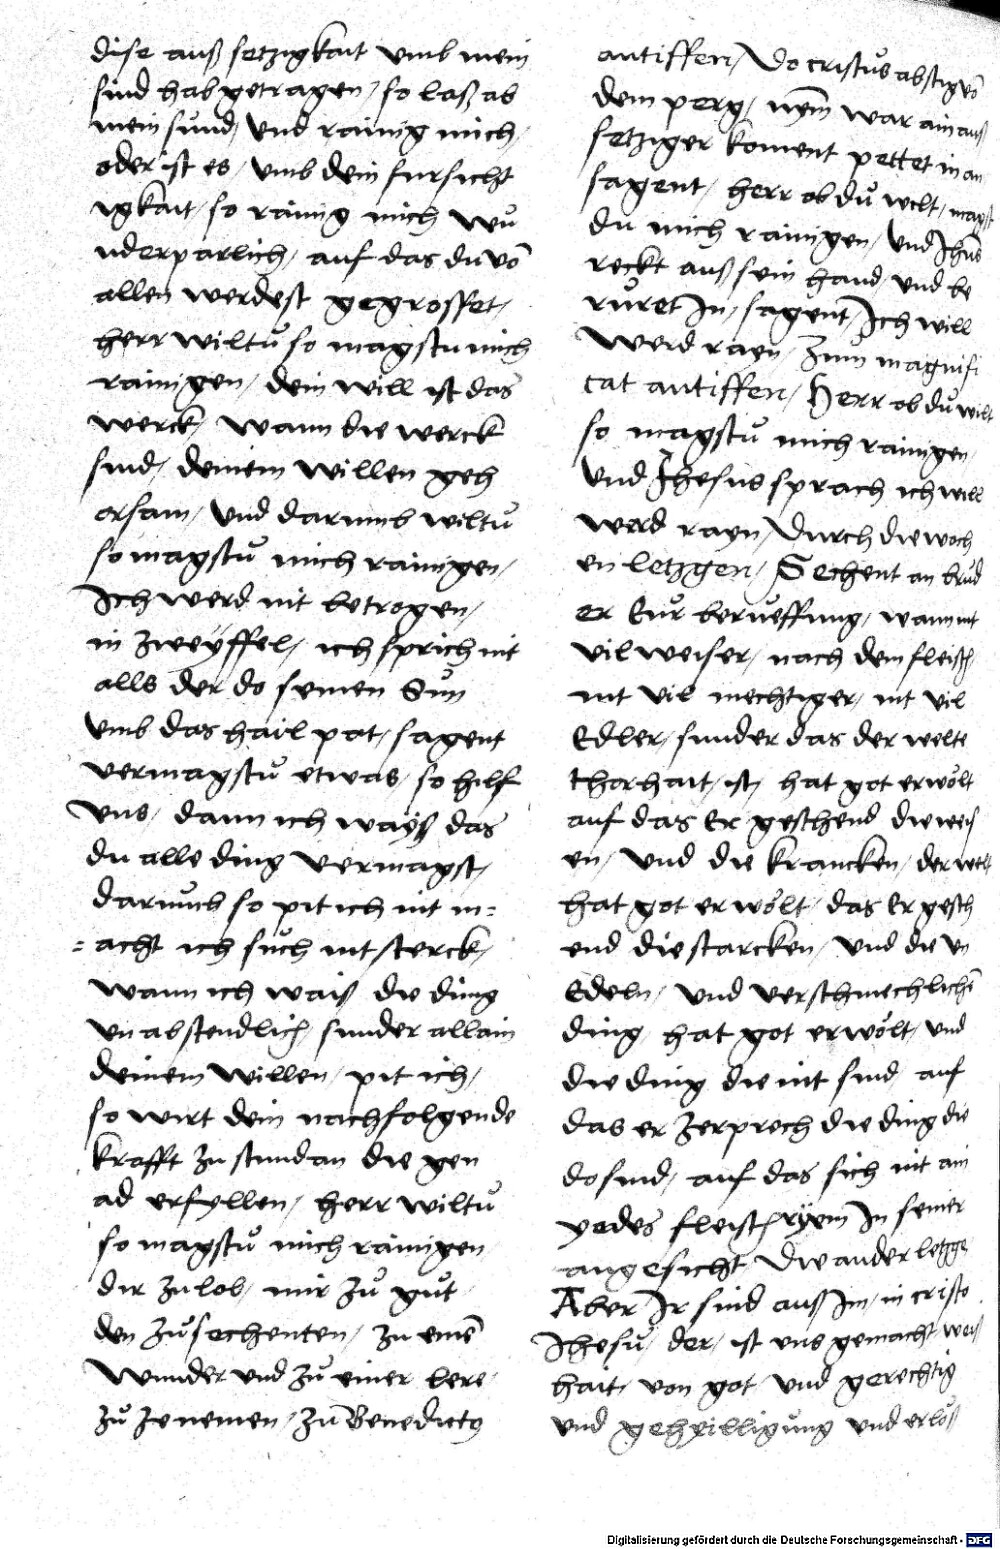 dise auß setzigkait vmb mein
sind hab getragen / so laß ab
mein sund / vnd rainig mich /
oder ist es / vmb dein fursicht
igkait / so rainig mich wu
nderparlich / auf das du vō
allen werdest gegrosset /
herr wiltu so magstu mich
rainigen / dein will ist das
werck / wann die werck
sind / deinem willen geh
orsam / vnd darumb wiltu
so magstu mich rainigen /
Ich werd nit betrogen /
in zweyffel / ich sprich nit
alls der do seinen Sun
vmb das hail pat / sagent
vermagstu etwas / so hilf
vns / dann ich wayß das
du alle ding vermagst /
darumb so pit ich nit m=
=acht ich such nit sterck /
wann ich waiß die ding
vnabstendlich / sunder allain
deinem willen / pit ich /
so wirt dein nachfolgende
krafft zu stundan die gen
ad erfyllen / herr wiltu
so magstu mich rainigen
dir zu lob / mir zu gut /
den zusechenten / zu einē
wunder vnd zu einer lere /
zu ze nemen / zū Benedict9
antiffen / Do cristus abstig vō
dem perg / nym war ain auß
setziger koment pettet in an
sagent / herr ob du wilt / magst
du mich rainigen / vnd Jhūs
reckt auß sein hand / vnd be
ruret In / sagent / Ich will
werd rayn / zum magnifi
cat antiffen / Herr ob du wilt
so magstu mich rainigen /
vnd Jhesus sprach ich will
werd rayn / Durch die woch
en letzgen / Sechent an brud
er Eur berueffung / wann nit
vil weiser / nach dem fleisch /
nit vil mechtiger / nit vil
Edler / sunder das der welte
thorhait / ist / hat got erwölt
auf das Er geschend die weis
en / vnd die krancken / der welt
hat got erwölt / das Er gesch
end die starcken / vnd die vn
Edeln / vnd verschmechlichē
ding / hat got erwölt / vnd
die ding die nit sind / auf
das er zerprech die ding die
do sind / auf das sich nit ain
yedes fleisch ryem In seiner
angesicht Die ander letzge
Aber Ir sind auß Im / in cristo
Jhesu / der / ist vns gemacht weis
hait / von got / vnd gerechtig
vnd geheilligung vnd erlöß
Digitalisierung gefördert durch die Deutsche Forschungsgemeinschaft - DFG